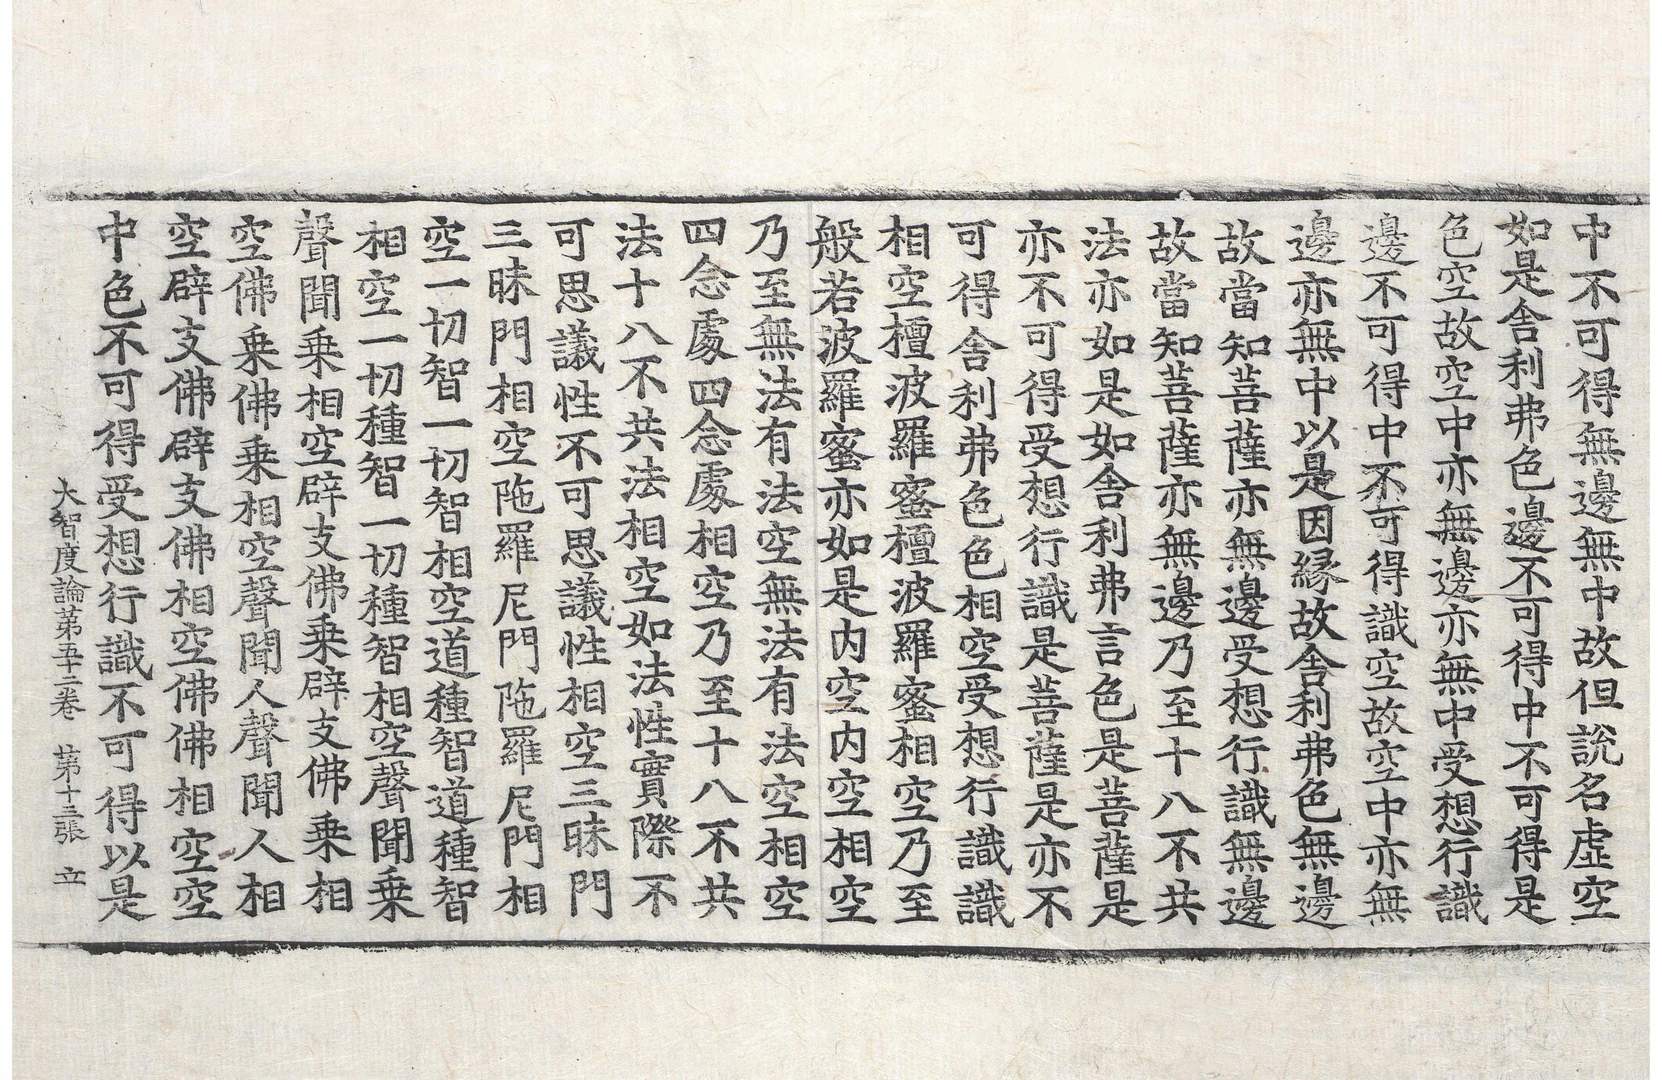 中不可得無邊無中故但說名虛空
如是舍利弗色邊不可得中不可得是
色空故空中亦無邊亦無中受想行識
邊不可得中不可得識空故空中亦無
邊亦無中以是因緣故舍利弗色無邊
故當知菩薩亦無邊受想行識無邊
故當知菩薩亦無邊乃至十八不共
法亦如是如舍利弗言色是菩薩是
亦不可得受想行識是菩薩是亦不
可得舍利弗色色相空受想行識識
相空檀波羅蜜檀波羅蜜相空乃至
般若波羅蜜亦如是內空內空相空
乃至無法有法空無法有法空相空
四念處四念處相空乃至十八不共
法十八不共法相空如法性實際不
可思議性不可思議性相空三昧門
三昧門相空陁羅尼門陁羅尼門相
空一切智一切智相空道種智道種智
相空一切種智一切種智相空聲聞乘
聲聞乘相空辟支佛乘辟支佛乘相
空佛乘佛乘相空聲聞人聲聞人相
空辟支佛辟支佛相空佛佛相空空
中色不可得受想行識不可得以是
大智度論第五十二卷 第十三張 立